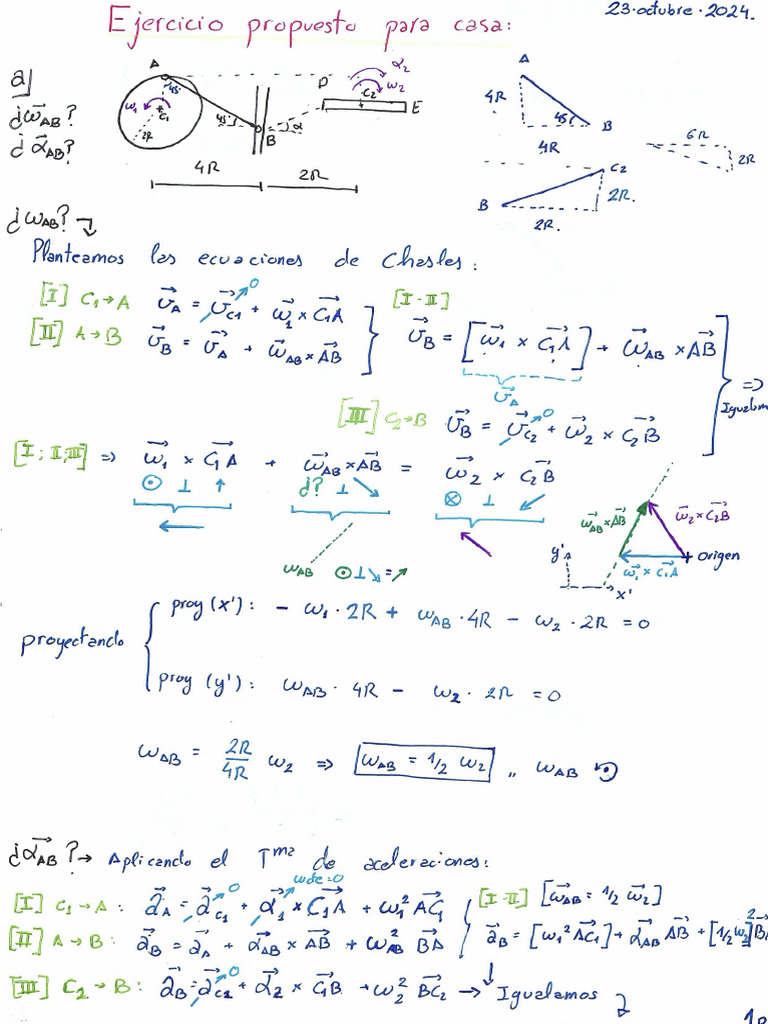 Ejercicio propuesto para casa:
23·octubre·2024.
a)
¿ω⃗AB?
¿α⃗AB?
A
45°
ω1
C1
2R
45°
B
α
D
α2
ω2
C2
E
4R
2R
A
4R
45°
B
4R
C2
B
2R.
2R.
6R
2R
¿ωAB?
Planteamos las ecuaciones de Chasles:
[I] C1→A v⃗A = v⃗C1 0 + ω⃗1 × C1A
[II] A→B v⃗B = v⃗A + ω⃗AB × AB
[I-II]
v⃗B = [ω⃗1 × C1A] + ω⃗AB × AB
v⃗A
[III] C2→B v⃗B = v⃗C2 0 + ω⃗2 × C2B
=>
[I;II;III] => ω⃗1 × C1A + ω⃗AB × AB = ω⃗2 × C2B
⊙ ⊥ ↑ ¿? ⊥ ↘ ⊗ ⊥ ↙
ωAB ⊙⊥↘=↗
ω⃗AB × AB
ω⃗2 × C2B
origen
ω⃗1 × C1A
y'
x'
proyectando
proy (x'): - ω1 · 2R + ωAB · 4R - ω2 · 2R = 0
proy (y'): ωAB · 4R - ω2 · 2R = 0
ωAB = 2R/4R ω2 => ωAB = 1/2 ω2 ,, ωAB
¿α⃗AB? → Aplicando el Tma de aceleraciones:
[I] C1→A: a⃗A = a⃗C1 0 + α⃗1 × C1A + ω1² AC1
ωcte=0
[II] A→B: a⃗B = a⃗A + α⃗AB × AB + ωAB² BA
[I-II] [ω⃗AB = 1/2 ω⃗2]
a⃗B = [ω1² AC1] + α⃗AB AB + [1/2 ω2]²
[III] C2→B: a⃗B = a⃗C2 0 + α⃗2 × C1B + ω2² BC2 → Igualamos